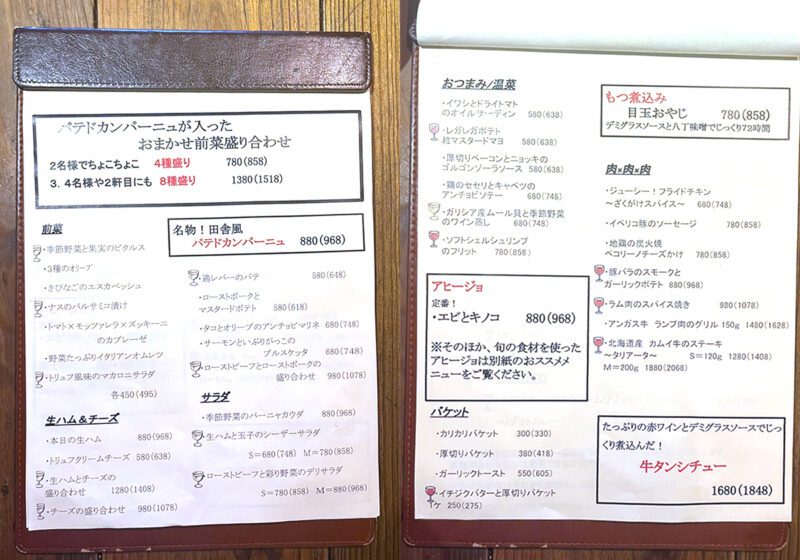 パテドカンパーニュが入った
おまかせ前菜盛り合わせ
2名様でちょこちょこ 4種盛り 780(858)
3.4名様や2軒目にも 8種盛り 1380(1518)
前菜
・季節野菜と果実のピクルス
・3種のオリーブ
・きびなごのエスカベッシュ
・ナスのバルサミコ漬け
・トマト×モッツァレラ×ズッキーニ
のカプレーゼ
・野菜たっぷりイタリアンオムレツ
・トリュフ風味のマカロニサラダ
各450(495)
生ハム&チーズ
・本日の生ハム 880(968)
・トリュフクリームチーズ 580(638)
・生ハムとチーズの
盛り合わせ 1280(1408)
・チーズの盛り合わせ 980(1078)
名物！田舎風
パテドカンパーニュ 880(968)
・鶏レバーのパテ 580(648)
・ローストポークと
マスタードポテト 580(618)
・タコとオリーブのアンチョビマリネ 680(748)
・サーモンといぶりがっこの
ブルスケッタ 680(748)
・ローストビーフとローストポークの
盛り合わせ 980(1078)
サラダ
・季節野菜のバーニャカウダ 880(968)
・生ハムと玉子のシーザーサラダ
S=680(748) M=780(858)
・ローストビーフと彩り野菜のデリサラダ
S=780(858) M=880(968)
おつまみ/温菜
・イワシとドライトマト
のオイルサーディン 580(638)
・レガレガポテト
粒マスタードマヨ 580(638)
・厚切りベーコンとニョッキの
ゴルゴンゾーラソース 580(638)
・鶏のセセリとキャベツの
アンチョビソテー 680(748)
・ガリシア産ムール貝と季節野菜
のワイン蒸し 680(748)
・ソフトシェルシュリンプ
のフリット 780(858)
アヒージョ
定番！
・エビとキノコ 880(968)
※そのほか、旬の食材を使った
アヒージョは別紙のおススメメ
ニューをご覧ください。
バケット
・カリカリバケット 300(330)
・厚切りバケット 380(418)
・ガーリックトースト 550(605)
・イチジクバターと厚切りバケット
ケ 250(275)
もつ煮込み
目玉おやじ 780(858)
デミグラスソースと八丁味噌でじっくり72時間
肉×肉×肉
・ジューシー！フライドチキン
～ざくがけスパイス～ 680(748)
・イベリコ豚のソーセージ 780(858)
・地鶏の炭火焼
ペコリーノチーズかけ 780(858)
・豚バラのスモークと
ガーリックポテト 880(968)
・ラム肉のスパイス焼き 980(1078)
・アンガス牛 ランプ肉のグリル 150g 1480(1628)
・北海道産 カムイ牛のステーキ
～タリアータ～ S=120g 1280(1408)
M=200g 1880(2068)
たっぷりの赤ワインとデミグラスソースでじっ
くり煮込んだ！
牛タンシチュー
1680(1848)